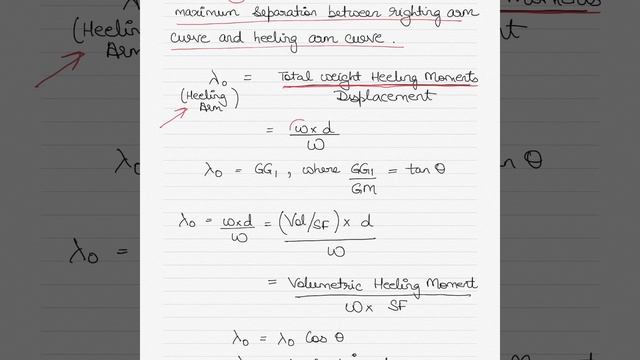 maximum separation between righting arm
curve and heeling arm curve.
λ₀ = Total weight Heeling Moments
(Heeling Arm)
Displacement
= w x d
W
λ₀ = GG₁, where GG₁ = tan θ
GM
λ₀ = w x d = (Vol/SF) x d
W W
= Volumetric Heeling Moment
W x SF
λ₀ = λ₀ Cos θ